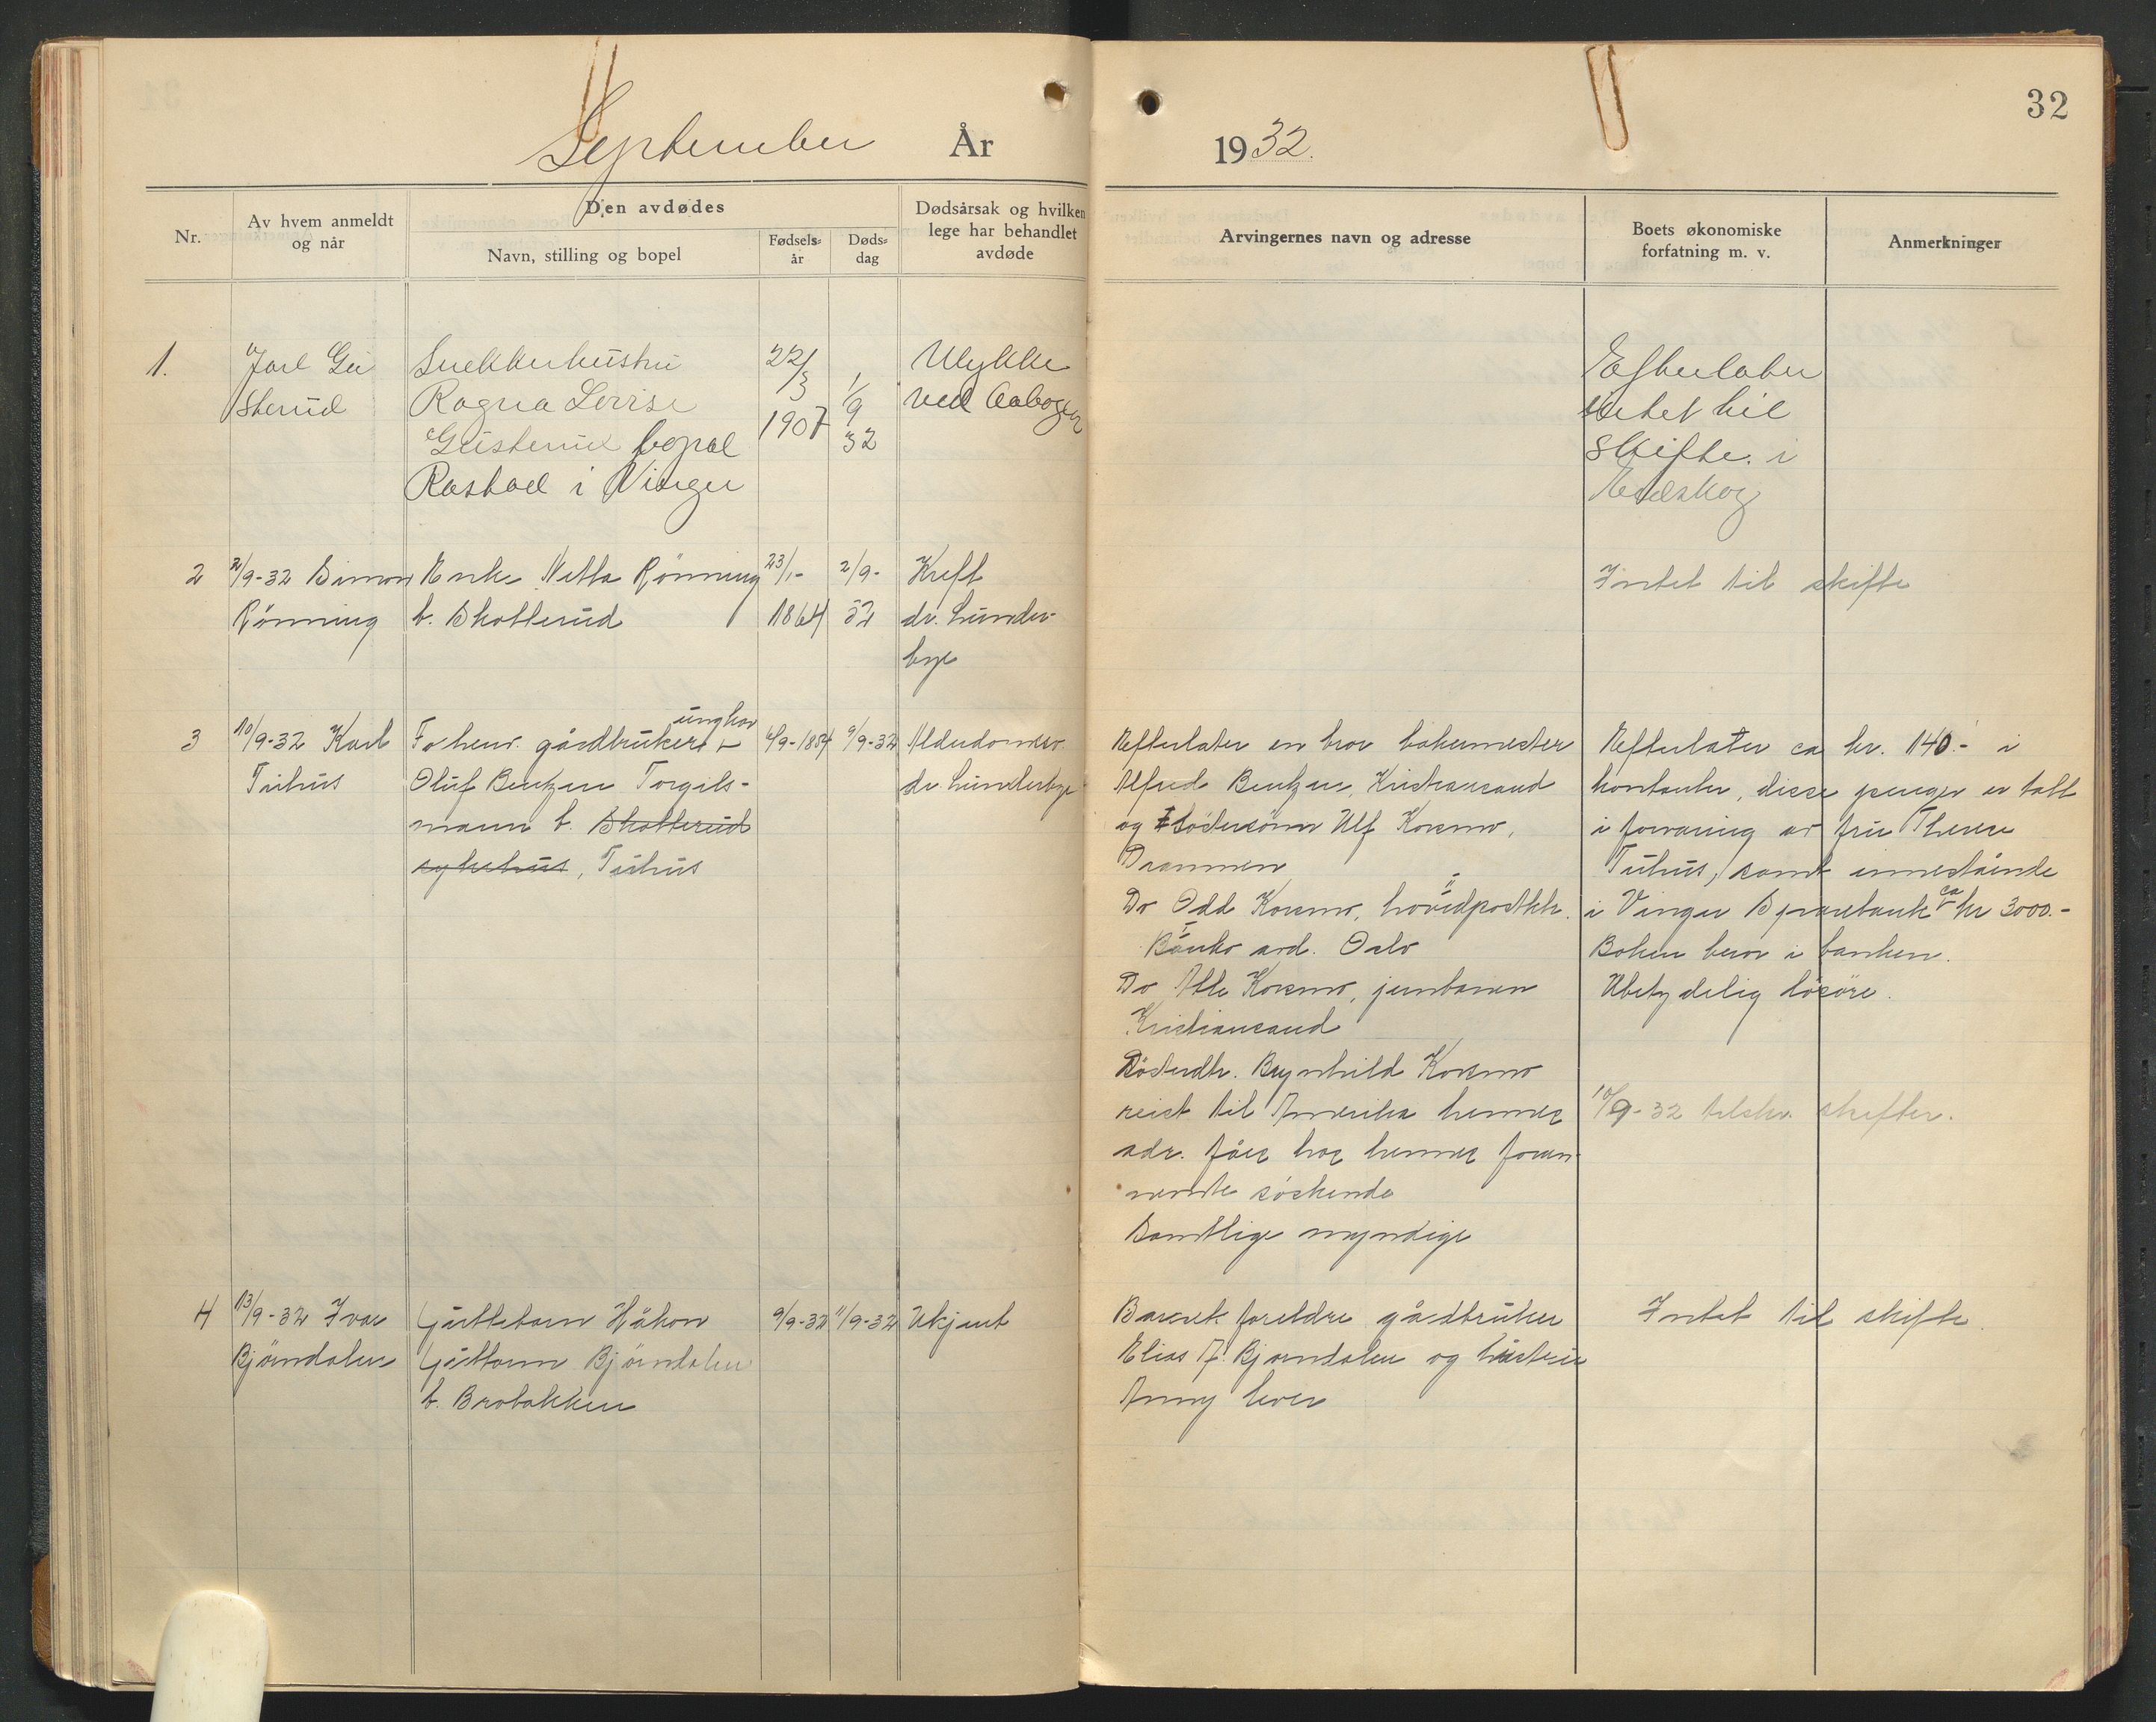 32
September År 1932.
Nr.
Av hvem anmeldt
og når
Den avdødes
Navn, stilling og bopel
Fødsels-
år
Døds-
dag
Dødsårsak og hvilken
lege har behandlet
avdøde
Arvingernes navn og adresse
Boets økonomiske
forfatning m. v.
Anmerkninger
1.
Jarl Gu
sterud
Snekkerhustru
Ragna Lovise
Gusterud bopæl
Rastad i Vinger
22/3
1907
1/9
32
Ulykke
ved Aabogen
Efterlater
intet til
skifte i
Eidskog
2
2/9-32 Simon
Rönning
Enke Netta Rönning
b. Skotterud
23/1-
1864
2/9-
32
Kreft
dr. Lunder-
bye
Intet til skifte
3
10/9-32 Karl
Tuhus
Forhenv. gårdbruker ungkar
Oluf Bentzen Torgils-
mann b. Skotterud
sykehus, Tuhus
4/9-1854
9/9-32
Alderdomssv.
dr. Lunderbye
Efterlater en bror bakermester
Alfred Bentzen, Kristiansand
og södersönn Ulf Korsmo,
Drammen
Do Odd Korsmo, hovedpostkk.
Banko avd. Oslo
Do Atle Korsmo, jernbanen
Kristiansand
Sösterdtr. Brynhild Korsmo
reist til Amerika hennes
adr. fåes hos hennes foran
nevnte söskende
Samtlige myndige
Efterlater ca kr. 140.- i
kontanter, disse penger er tatt
i forvaring av fru Therese
Tuhus, samt innestående
i Vinger Sparebank ca kr 3000.-
Boken beror i banken.
Ubetydelig lösöre.
10/9-32 tilskr. skifter.
4
13/9-32 Ivar
Björndalen
Guttebarn Håkon
Guttorm Björndalen
b. Brobakken
9/9-32
11/9-32
Ukjent
Barnets foreldre gårdbruker
Elias J. Bjorndalen og hustru
Anny lever
Intet til skifte.